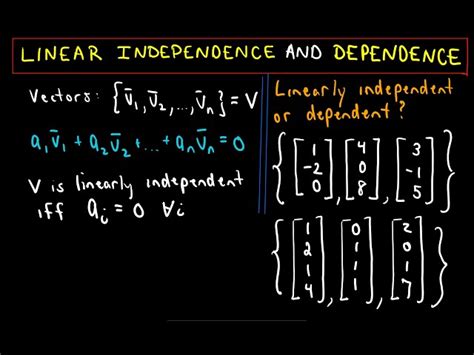 LINEAR INDEPENDENCE AND DEPENDENCE
Vectors: {v̄₁, v̄₂, ..., v̄ₙ} = V
a₁v̄₁ + a₂v̄₂ + ... + aₙv̄ₙ = 0
V is linearly independent
iff aᵢ = 0 ∀i
Linearly independent
or dependent?
{[1 -2 0], [4 0 8], [3 -1 5]}
{[1 2 1 4], [0 1 1 1], [2 0 1 7]}